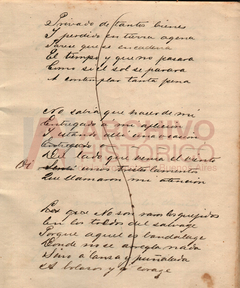 2 Privado de tantos bienes
Y perdido en tierra agena
Parece que se encadena
El tiempo y que no pasara
Como si el sol se parara
A contemplar tanta pena
No sabia que hacer de mi
Entregado a mi aflicion
Y estando alli una ocacion
Entregado
Del lado que venia el viento
Oi unos tristes lamentos
Que llamaron mi atencion
No son raros los quejidos
En los toldos del salvage
Porque aquel es bandalage
Donde no se arregla nada
Sino a lanza y puñalada
A bolazos y a corage
ARCHIVO
HISTÓRICO